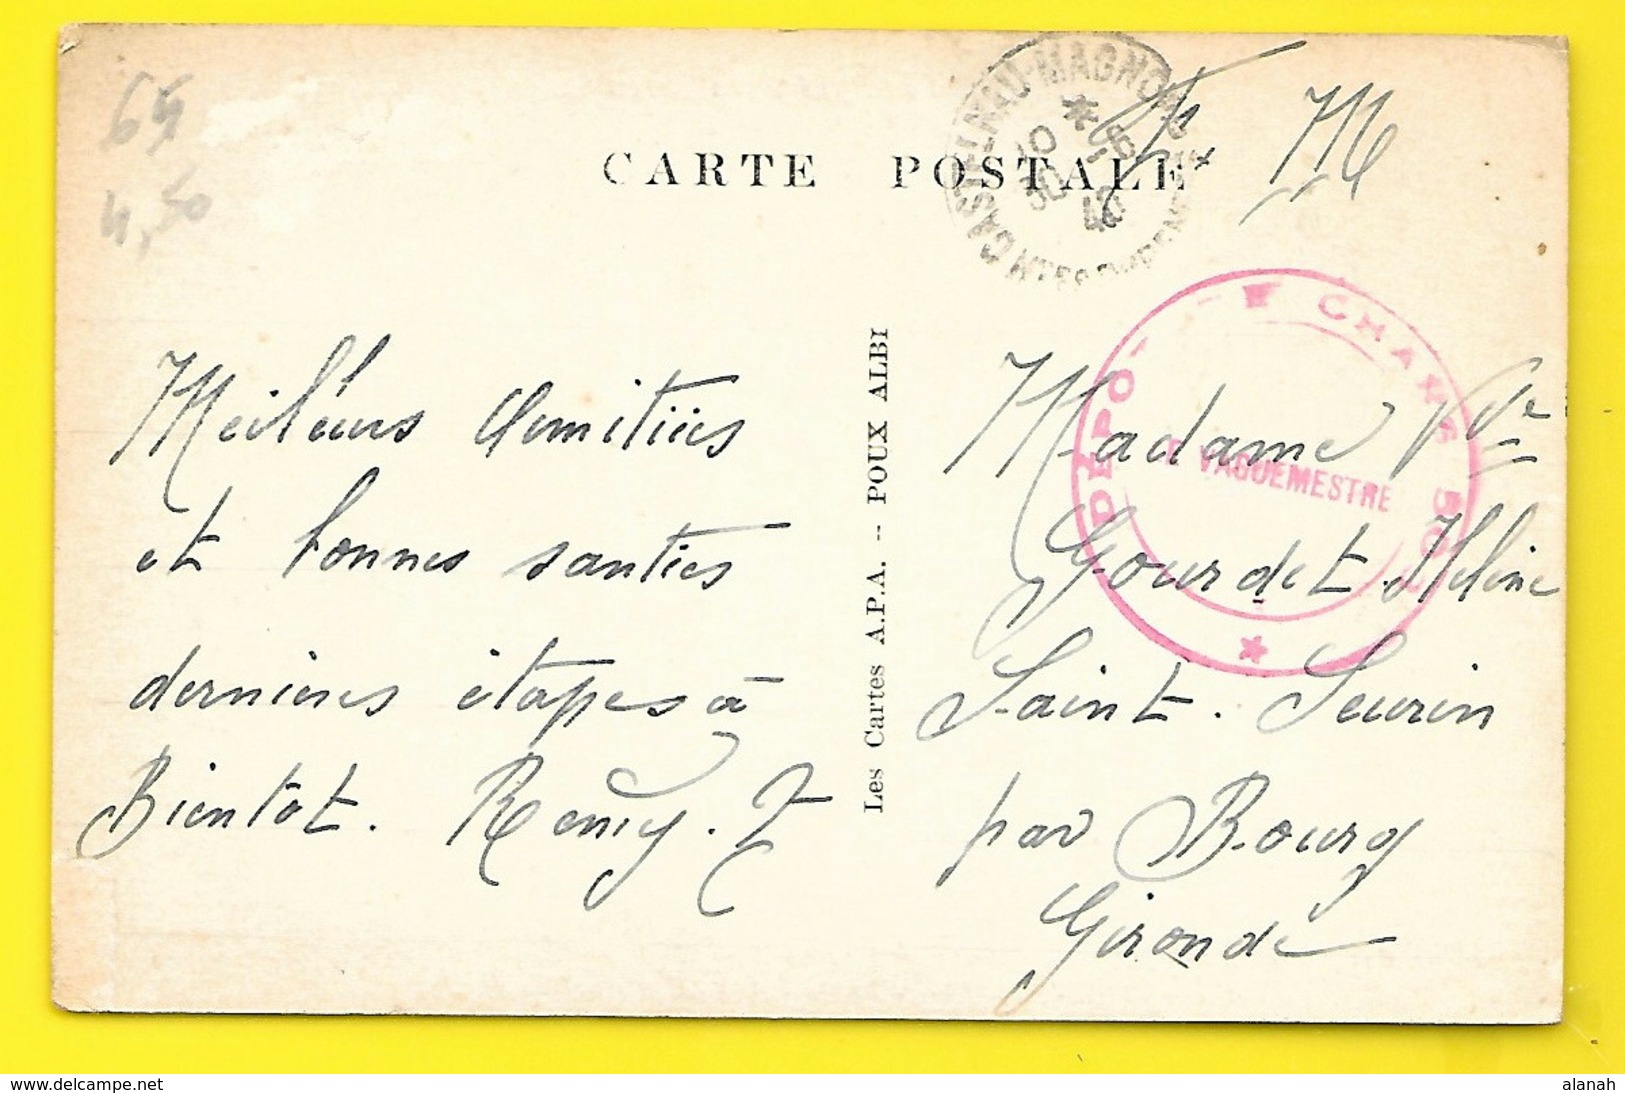 65
4,50
CARTE POSTALE
F. M
CASTELNAU-MAGNOAC
10 * -6
30 40
DEPOT DE CHARS
LE VAGUEMESTRE
Meilleurs Amitiées
et bonnes santées
dernières étapes à
Bientôt. Remy.
Les Cartes A.P.A. -- POUX ALBI
Madame Vve
Gourdet Hélène
Saint. Seurin
par Bourg
Gironde
www.delcampe.net
alanah